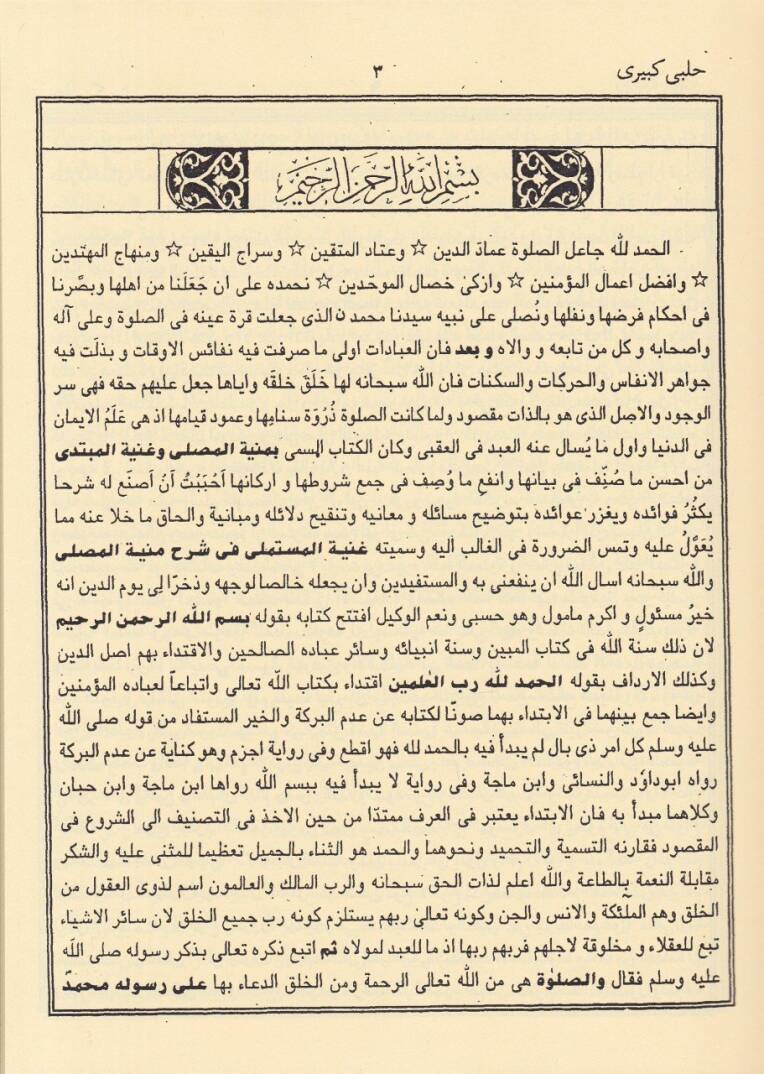 حلبى كبيرى
٣
بسم الله الرحمن الرحيم
الحمد لله جاعل الصلوة عماد الدين ☆ وعتاد المتقين ☆ وسراج اليقين ☆ ومنهاج المهتدين
☆ وافضل اعمال المؤمنين ☆ وازكىٰ خصال الموحّدين ☆ نحمده على ان جَعَلَنا من اهلها وبصَّرنا
فى احكام فرضها ونفلها ونُصلى على نبيه سيدنا محمد ن الذى جعلت قرة عينه فى الصلوة وعلى آله
واصحابه و كل من تابعه و والاه و بعد فان العبادات اولى ما صرفت فيه نفائس الاوقات و بذلَت فيه
جواهر الانفاس والحركات والسكنات فان الله سبحانه لها خَلَقَ خلقَه واياها جعل عليهم حقه فهى سر
الوجود والاصل الذى هو بالذات مقصود ولما كانت الصلوة ذُرُوَة سنامِها وعمود قيامها اذ هى عَلَمُ الايمان
فى الدنيا واول ما يُسال عنه العبد فى العقبى وكان الكتاب المسمى بمنية المصلى وغنية المبتدى
من احسن ما صُنِّف فى بيانها وانفعِ ما وُصِف فى جمع شروطها و اركانها اَحْبَبْتُ اَنْ اصنَع له شرحا
يكثُرُ فوائده ويغزر عوائده بتوضيح مسائله و معانيه وتنقيح دلائله ومبانية والحاق ما خلا عنه مما
يُعَوَّلُ عليه وتمس الضرورة فى الغالب اليه وسميته غنية المستملى فى شرح منية المصلى
والله سبحانه اسال الله ان ينفعنى به والمستفيدين وان يجعله خالصا لوجهه وذخرًا لِى يوم الدين انه
خيرُ مسئولٍ و اكرم مامول وهو حسبى ونعم الوكيل افتتح كتابه بقوله بسم الله الرحمن الرحيم
لان ذلك سنة الله فى كتاب المبين وسنة انبيائه وسائر عباده الصالحين والاقتداء بهم اصل الدين
وكذلك الارداف بقوله الحمد لله رب العٰلمين اقتداء بكتاب الله تعالى واتباعاً لعباده المؤمنين
وايضا جمع بينهما فى الابتداء بهما صونًا لكتابه عن عدم البركة والخير المستفاد من قوله صلى الله
عليه وسلم كل امر ذى بال لم يبدأ فيه بالحمد لله فهو اقطع وفى رواية اجزم وهو كناية عن عدم البركة
رواه ابوداؤد والنسائى وابن ماجة وفى رواية لا يبدأ فيه ببسم الله رواها ابن ماجة وابن حبان
وكلاهما مبدأ به فان الابتداء يعتبر فى العرف ممتدّا من حين الاخذ فى التصنيف الى الشروع فى
المقصود فقارنه التسمية والتحميد ونحوهما والحمد هو الثناء بالجميل تعظيما للمثنى عليه والشكر
مقابلة النعمة بالطاعة والله اعلم لذات الحق سبحانه والرب المالك والعالمون اسم لذوى العقول من
الخلق وهم الملٰئكة والانس والجن وكونه تعالىٰ ربهم يستلزم كونه رب جميع الخلق لان سائر الاشياء
تبع للعقلاء و مخلوقة لاجلهم فربهم ربها اذ ما للعبد لمولاه ثم اتبع ذكره تعالى بذكر رسوله صلى الله
عليه وسلم فقال والصلوٰة هى من الله تعالى الرحمة ومن الخلق الدعاء بها على رسوله محمدّ